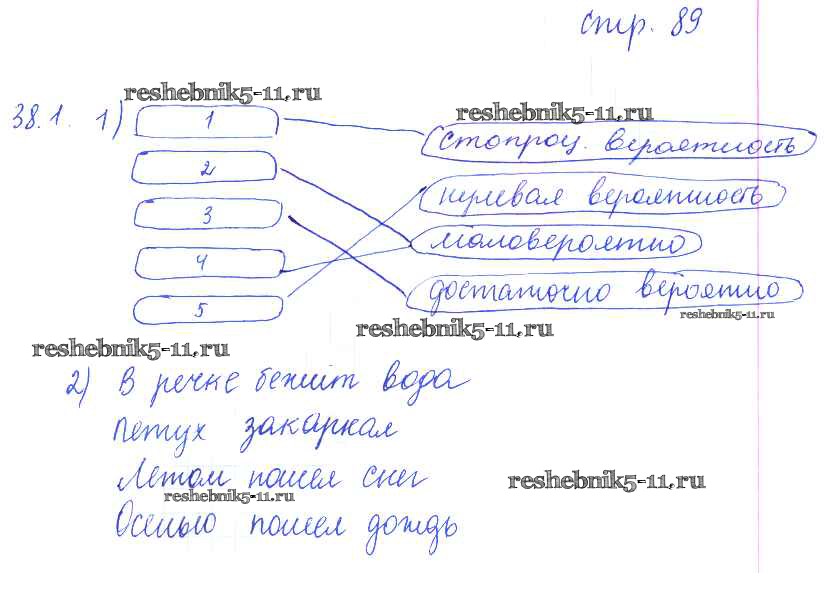 стр. 89
reshebnik5-11.ru
reshebnik5-11.ru
38.1. 1) 1
стопроц. вероятность
2
нулевая вероятность
3
маловероятно
4
достаточно вероятно
5
reshebnik5-11.ru
reshebnik5-11.ru
reshebnik5-11.ru
2) В речке бежит вода
Петух закаркал
Летом пошел снег
reshebnik5-11.ru
reshebnik5-11.ru
Осенью пошел дождь